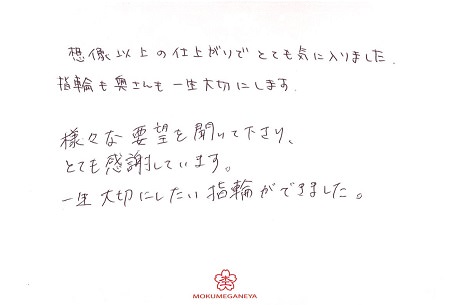 想像以上の仕上がりでとても気に入りました.
指輪も奥さんも一生大切にします.
様々な要望を聞いて下さり、
とても感謝しています。
一生大切にしたい指輪ができました。
MOKUMEGANEYA